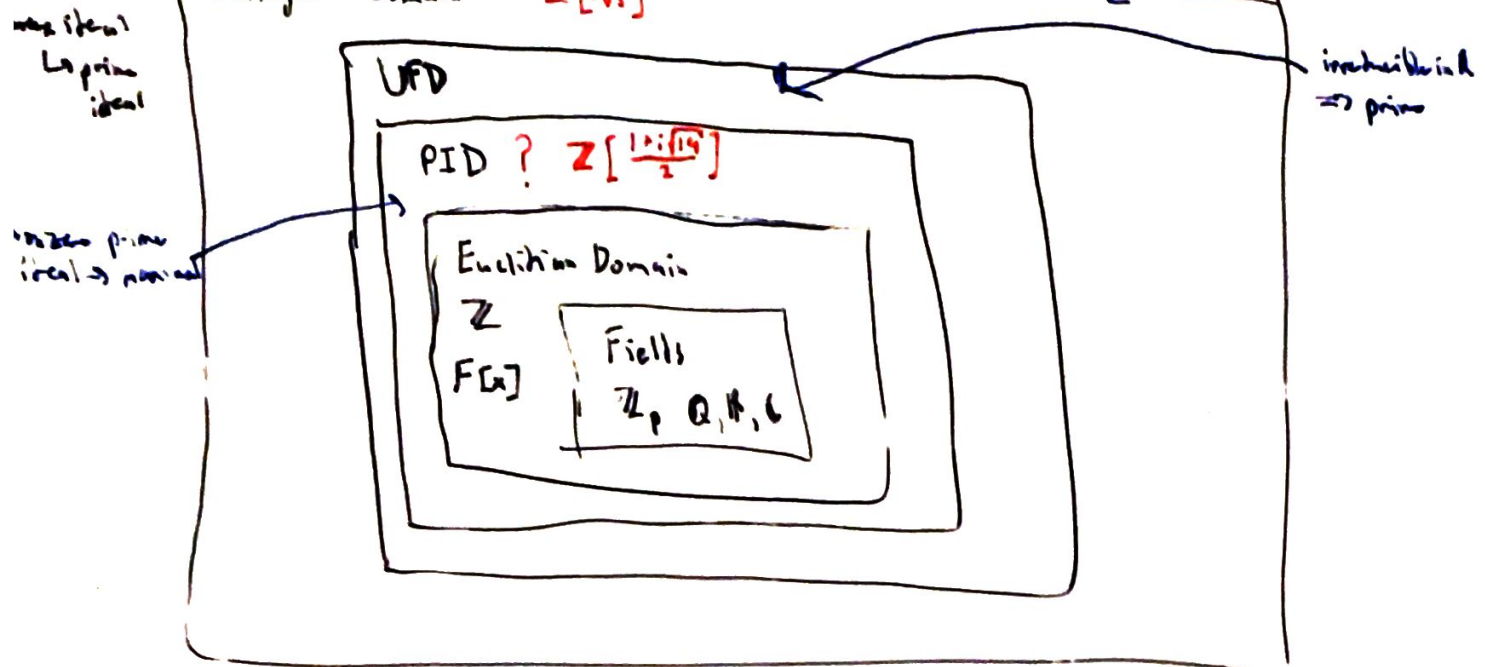 max ideal
↳ prime
ideal
UFD
irreducible in R
⇒ prime
PID ? Z[(1+i√19)/2]
nonzero prime
ideal → maximal
Euclitian Domain
ℤ
F[x]
Fields
ℤp Q, R, C